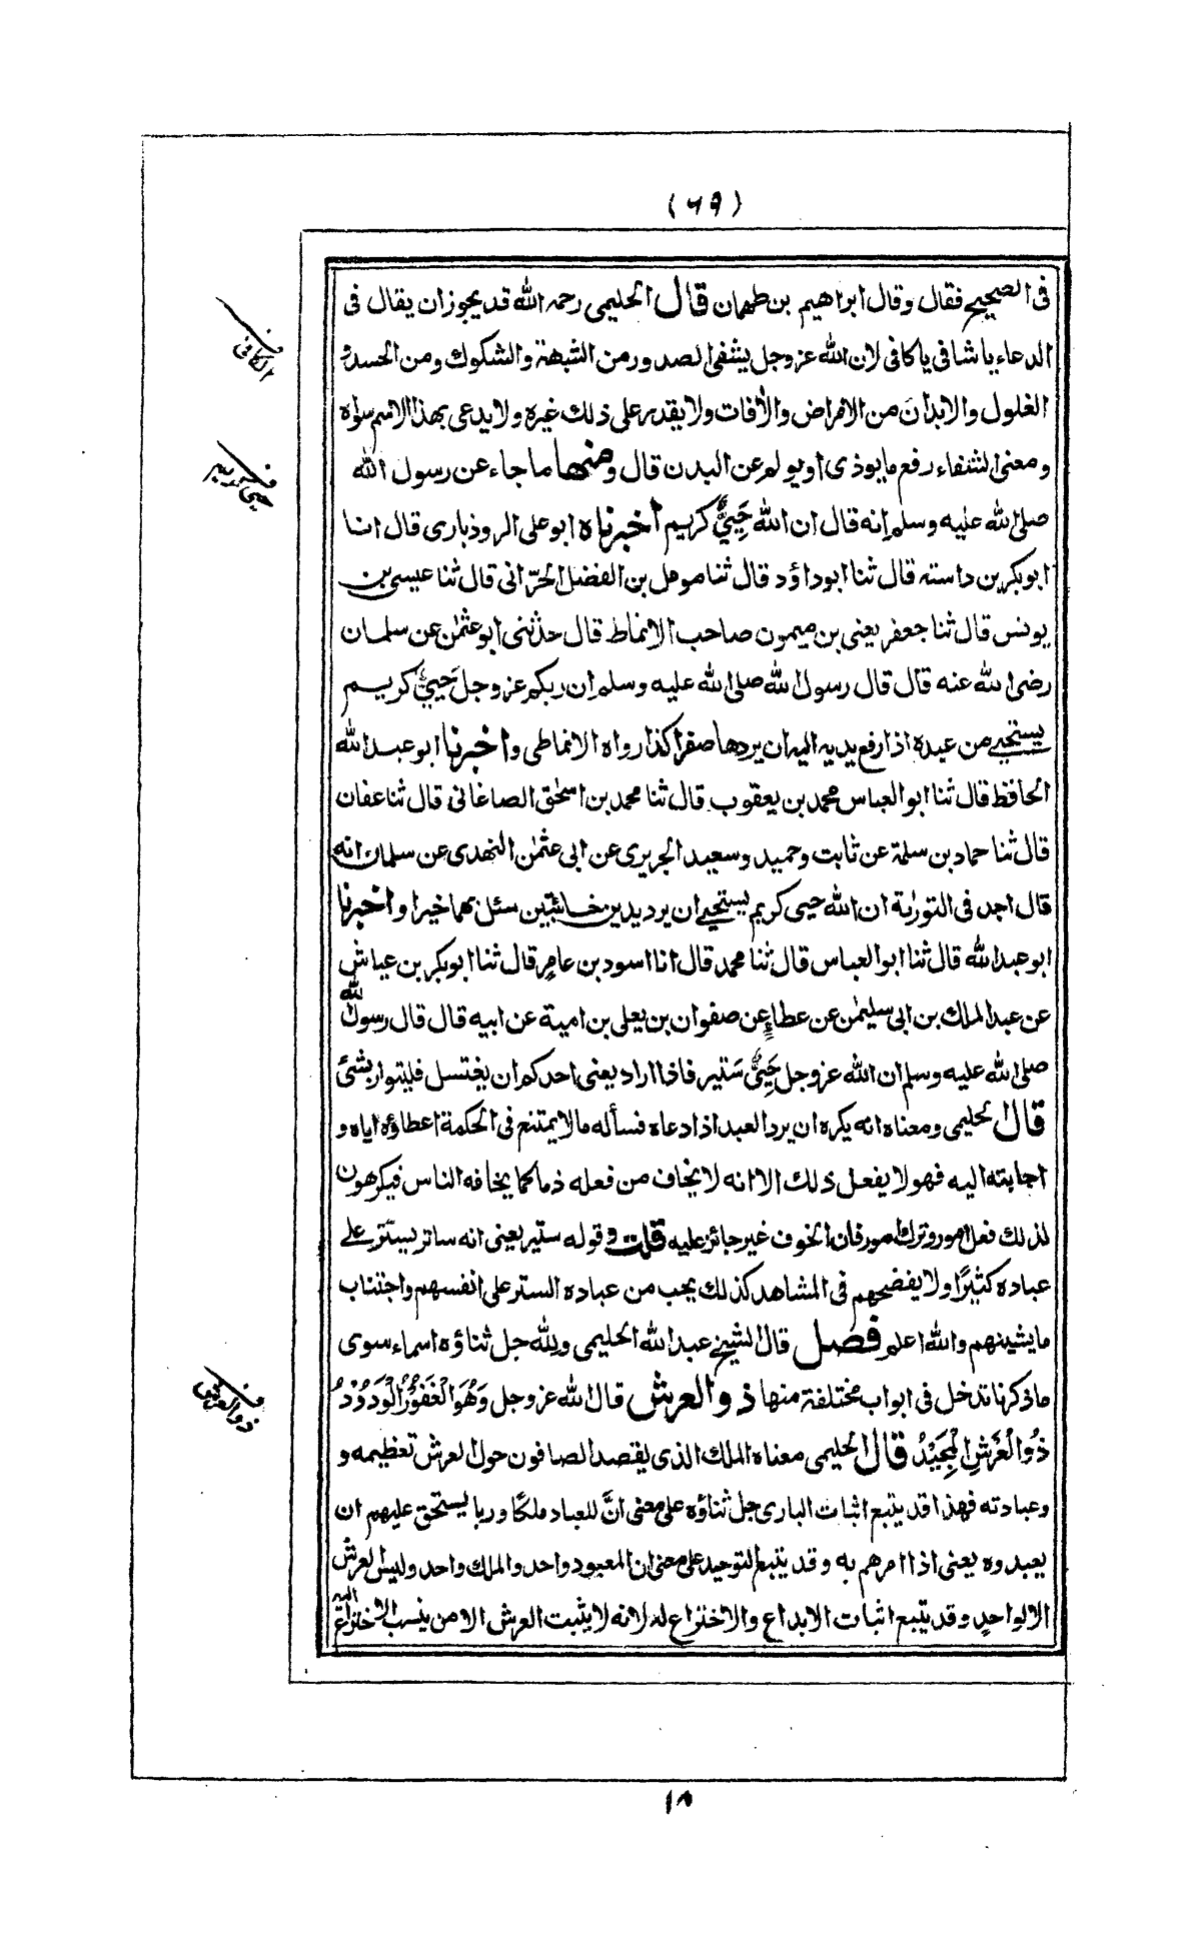 (٦٩)
فى الصحيح فقال وقال ابراهيم بن طهمان قال الحليمى رحمه الله قد يجوز ان يقال فى
الدعاء يا شافى يا كافى لان الله عز وجل يشفى الصدور من الشبهة والشكوك ومن الحسد و
الغلول والابدان من الامراض والأفات ولا يقدر على ذلك غيره ولا يدعى بهذا الاسم سواه
ومعنى الشفاء رفع ما يوذى او يولم عن البدن قال ومنها ما جاء عن رسول الله
صلى الله عليه وسلم انه قال ان الله حَيِيٌّ كريم اخبرناه ابو على الروذبارى قال انا
ابوبكر بن داسته قال ثنا ابوداؤد قال ثنا مومل بن الفضل الحرّانى قال ثنا عيسى بن
يونس قال ثنا جعفر يعنى بن ميمون صاحب الانماط قال حدثنى ابو عثمٰن عن سلمان
رضى الله عنه قال قال رسول الله صلى الله عليه وسلم ان ربكم عز وجل حَيِيٌّ كريم
يستحيى من عبده اذا رفع يديه اليه ان يردها صفرا كذا رواه الانماطى واخبرنا ابو عبد الله
الحافظ قال ثنا ابو العباس محمد بن يعقوب قال ثنا محمد بن اسحٰق الصاغانى قال ثنا عفان
قال ثنا حماد بن سلمة عن ثابت وحميد وسعيد الجريرى عن ابى عثمٰن النهدى عن سلمان انه
قال اجد فى التورٰىة ان الله حيى كريم يستحيى ان يرد يدين خائبتين سئل بهما خيرا واخبرنا
ابو عبد الله قال ثنا ابو العباس قال ثنا محمد قال انا اسود بن عامر قال ثنا ابوبكر بن عياش
عن عبد الملك بن ابى سليمٰن عن عطاءٍ عن صفوان بن يعلى بن امية عن ابيه قال قال رسول الله
صلى الله عليه وسلم ان الله عز وجل حَيِىٌّ سَتير فاذا اراد يعنى احدكم ان يغتسل فليتوار بشئ
قال الحليمى ومعناه انه يكره ان يرد العبد اذا دعاه فسأله ما لا يمتنع فى الحكمة اعطاؤه اياه و
اجابته اليه فهو لا يفعل ذلك الا انه لا يخاف من فعله ذما كما يخافه الناس فيكرهون
لذلك فعل امور وترك امور فان الخوف غير جائز عليه قلت وقوله ستير يعنى انه ساتر يستر على
عباده كثيرًا ولا يفضحهم فى المشاهد كذلك يحب من عباده الستر على انفسهم واجتناب
ما يشينهم والله اعلم فصل قال الشيخ عبد الله الحليمى ولله جل ثناؤه اسماء سوى
ما ذكرنا تدخل فى ابواب مختلفة منها ذو العرش قال الله عز وجل وَهُوَ الْغَفُوْرُ الْوَدُوْدُ
ذُو الْعَرْشِ الْمَجِيْدُ قال الحليمى معناه الملك الذى يقصد الصافون حول العرش تعظيمه و
وعبادته فهذا قد يتبع اثبات البارى جل ثناؤه على معنى انَّ للعباد ملكًا وربا يستحق عليهم ان
يعبدوه يعنى اذا امرهم به وقد يتبع التوحيد على معنى ان المعبود واحد والملك واحد وليس العرش
الا لواحدٍ وقد يتبع اثبات الابداع والاختراع له لانه لا يثبت العرش الا من ينسب الاختراع اليه
الكافى
حيى كريم
ذو العرش
١٨